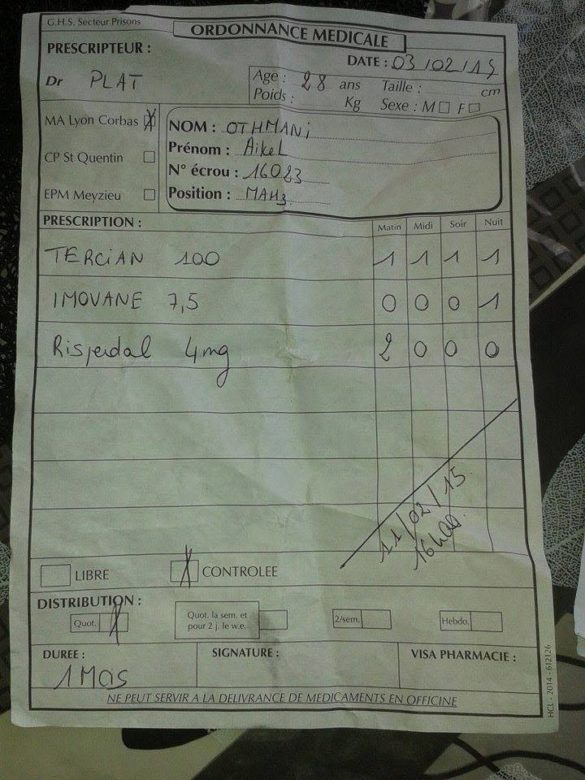 G.H.S. Secteur Prisons
ORDONNANCE MEDICALE
PRESCRIPTEUR :
DATE : 03/02/15
Dr PLAT
Age : 28 ans Taille : cm
Poids : Kg Sexe : M □ F □
MA Lyon Corbas X
CP St Quentin □
EPM Meyzieu □
NOM : OTHMANi
Prénom : AikeL
N° écrou : 16023
Position : MAH3
PRESCRIPTION : Matin Midi Soir Nuit
TERCIAN 100 1 1 1 1
IMOVANE 7,5 0 0 0 1
Risperdal 4mg 2 0 0 0
11/02/15
16h00
□ LIBRE X CONTROLEE
DISTRIBUTION :
Quot. X
Quot. la sem. et
pour 2 j. le w.e.
2/sem.
Hebdo.
DUREE : SIGNATURE : VISA PHARMACIE :
1 Mois
NE PEUT SERVIR A LA DELIVRANCE DE MEDICAMENTS EN OFFICINE
HCL - 2014 - 612126